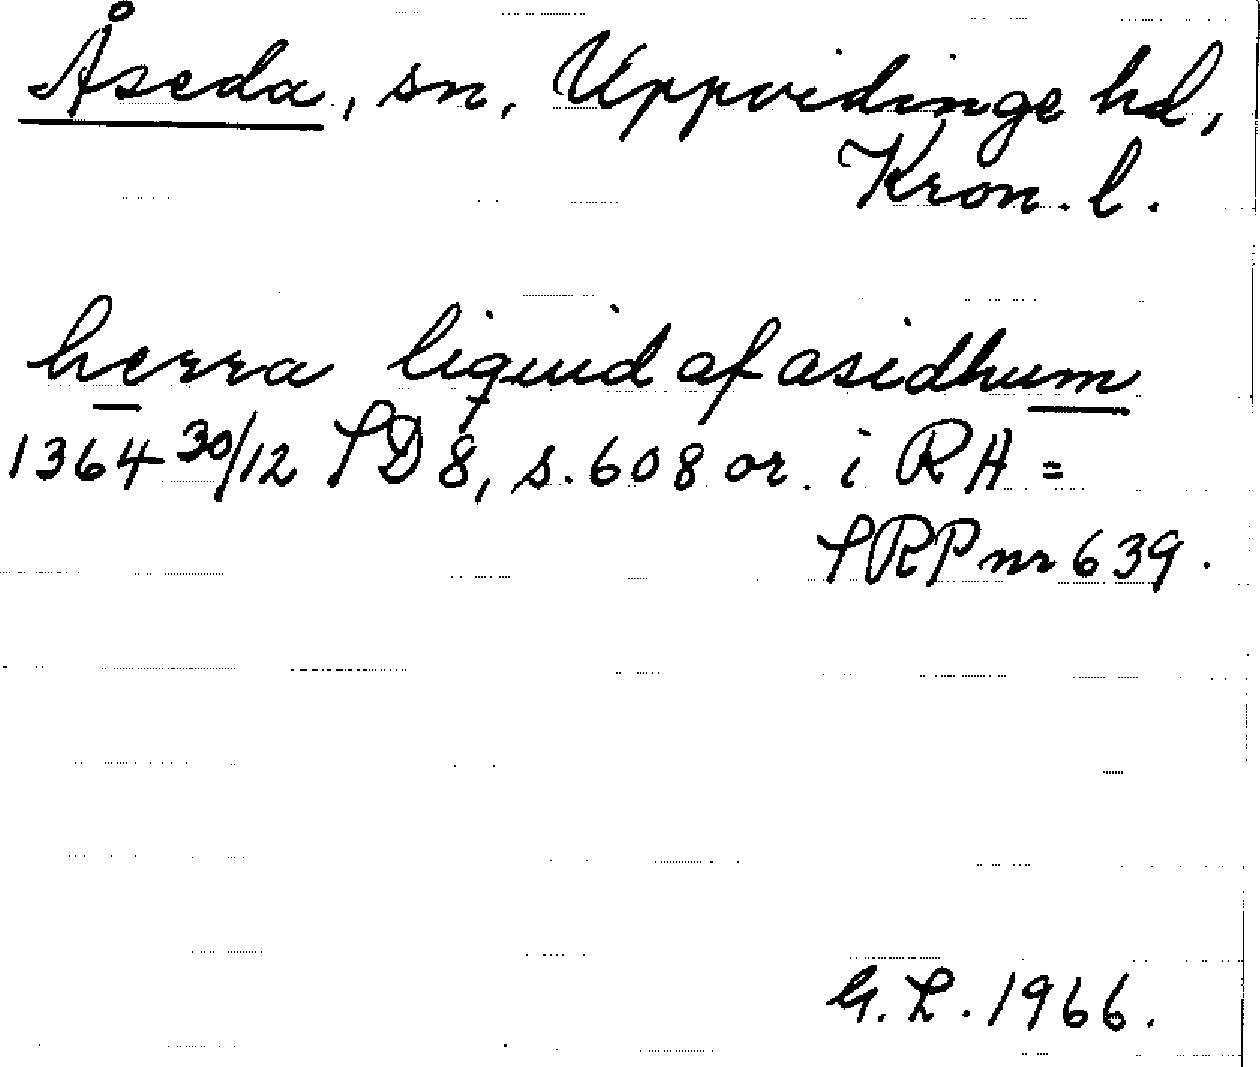 Åseda, sn, Uppvidinge hd,
Kron. l.
herra liquid af asidhum
1364 30/12 SD 8, s. 608 or. i RA =
SRP nr 639.
G. L. 1966.